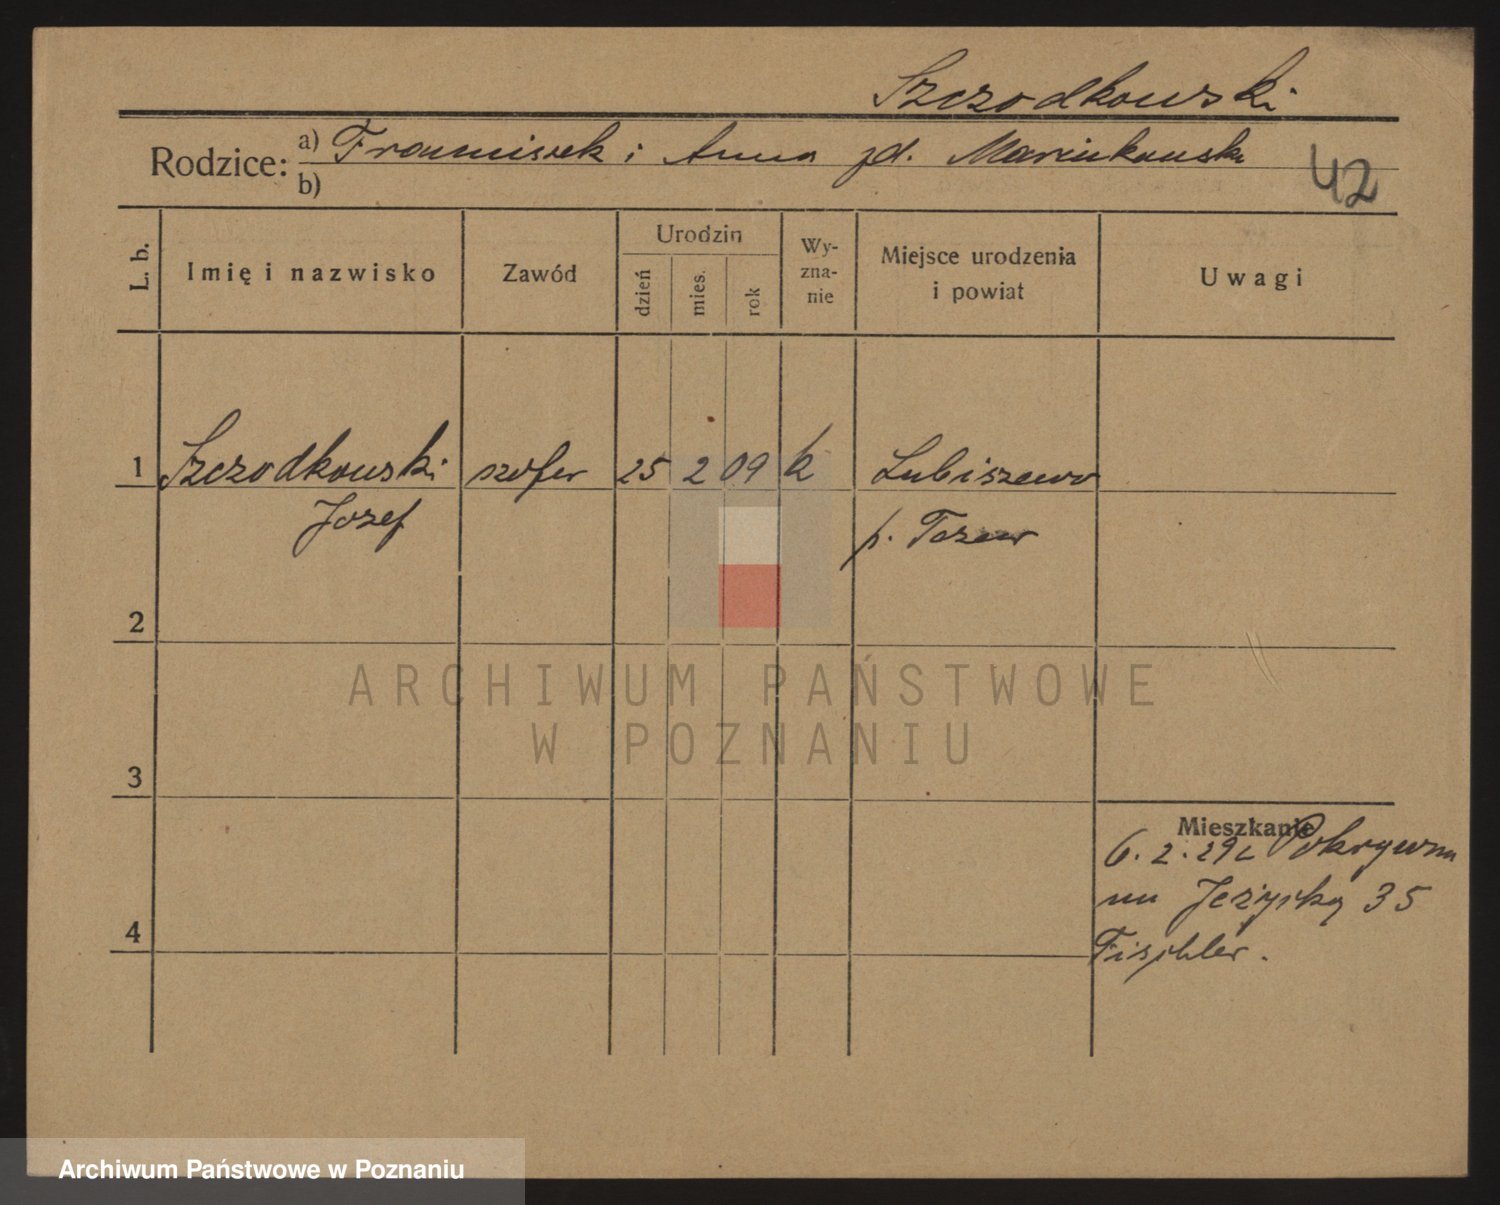 Szczodkowski
Rodzice: a) Franciszek i Anna zd.
b)
42
L. b.
Imię i nazwisko
Zawód
Urodzin
dzień
mies.
rok
Wy-
zna-
nie
Miejsce urodzenia
i powiat
Uwagi
1 Szczodkowski szofer 25 2 09 k Lubiszewo
Józef p. Tczew
2
3
4
Mieszkanie
6. 2. 29 Pokrzywna
Jeżycka 35
ARCHIWUM PAŃSTWOWE
W POZNANIU
Archiwum Państwowe w Poznaniu